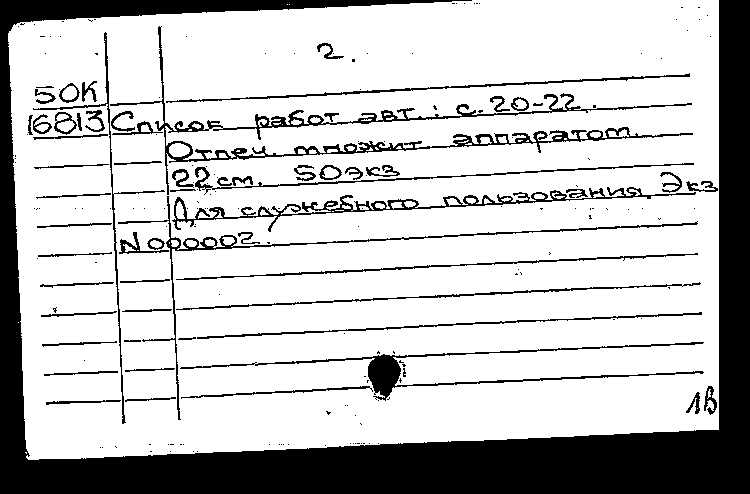 2.
50К
16813 Список работ авт.: с. 20-22.
Отпеч. множит. аппаратом.
22 см. 50 экз
Для служебного пользования. Экз
N 000002.
1В